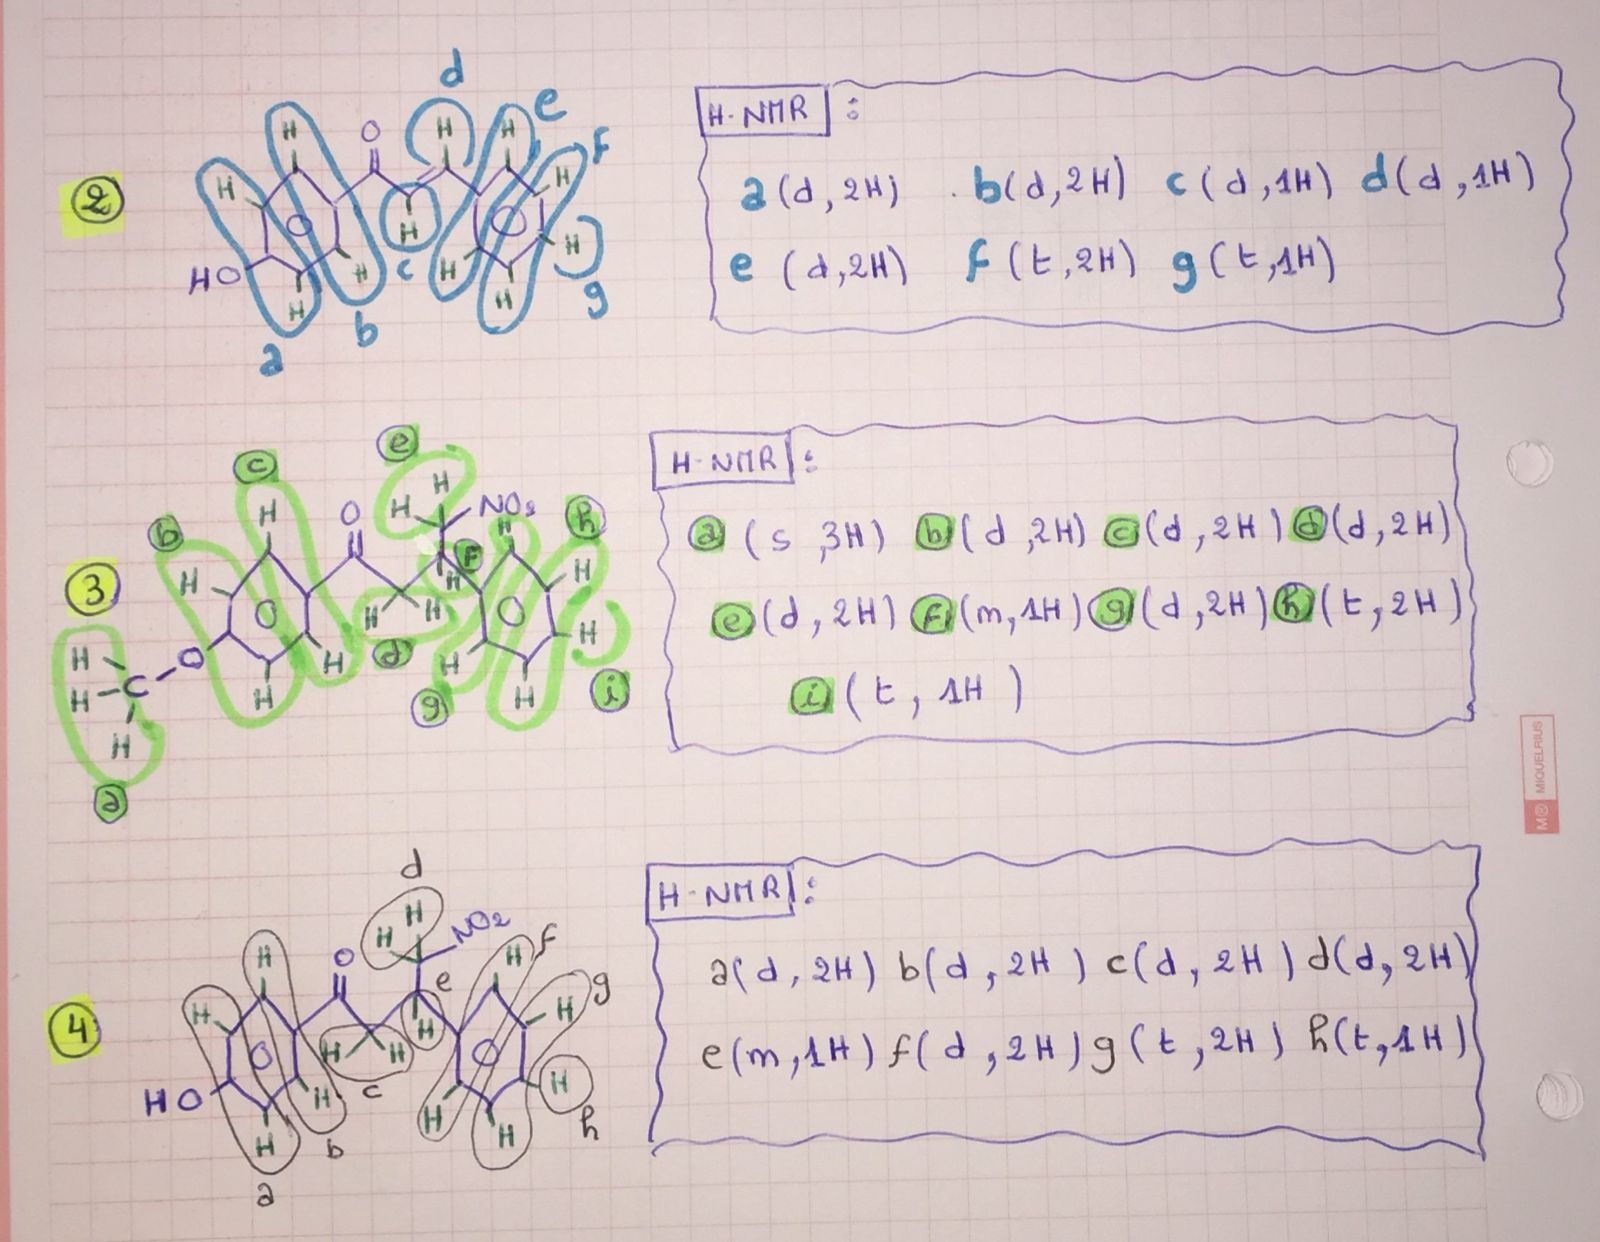 2
d
e
f
H
H
H
H
O
H
H
H
HO
H
H
H
H
c
g
b
a
H-NMR :
a (d, 2H) b(d, 2H) c (d, 1H) d(d, 1H)
e (d, 2H) f (t, 2H) g (t, 1H)
3
e
c
b
h
H
H
H
O
NO2
H
H
H
f
H
H
H
H
H
O
H
H
H
d
H
C
H
H
g
i
H
a
H-NMR :
a (s, 3H) b (d, 2H) c (d, 2H) d (d, 2H)
e (d, 2H) f (m, 1H) g (d, 2H) h (t, 2H)
i (t, 1H)
4
d
H
H
NO2
f
H
O
H
e
g
H
H
H
H
H
H
HO
H
c
H
H
H
h
b
a
H-NMR :
a(d, 2H) b(d, 2H) c(d, 2H) d(d, 2H)
e(m, 1H) f(d, 2H) g(t, 2H) h(t, 1H)
M MIQUELRIUS